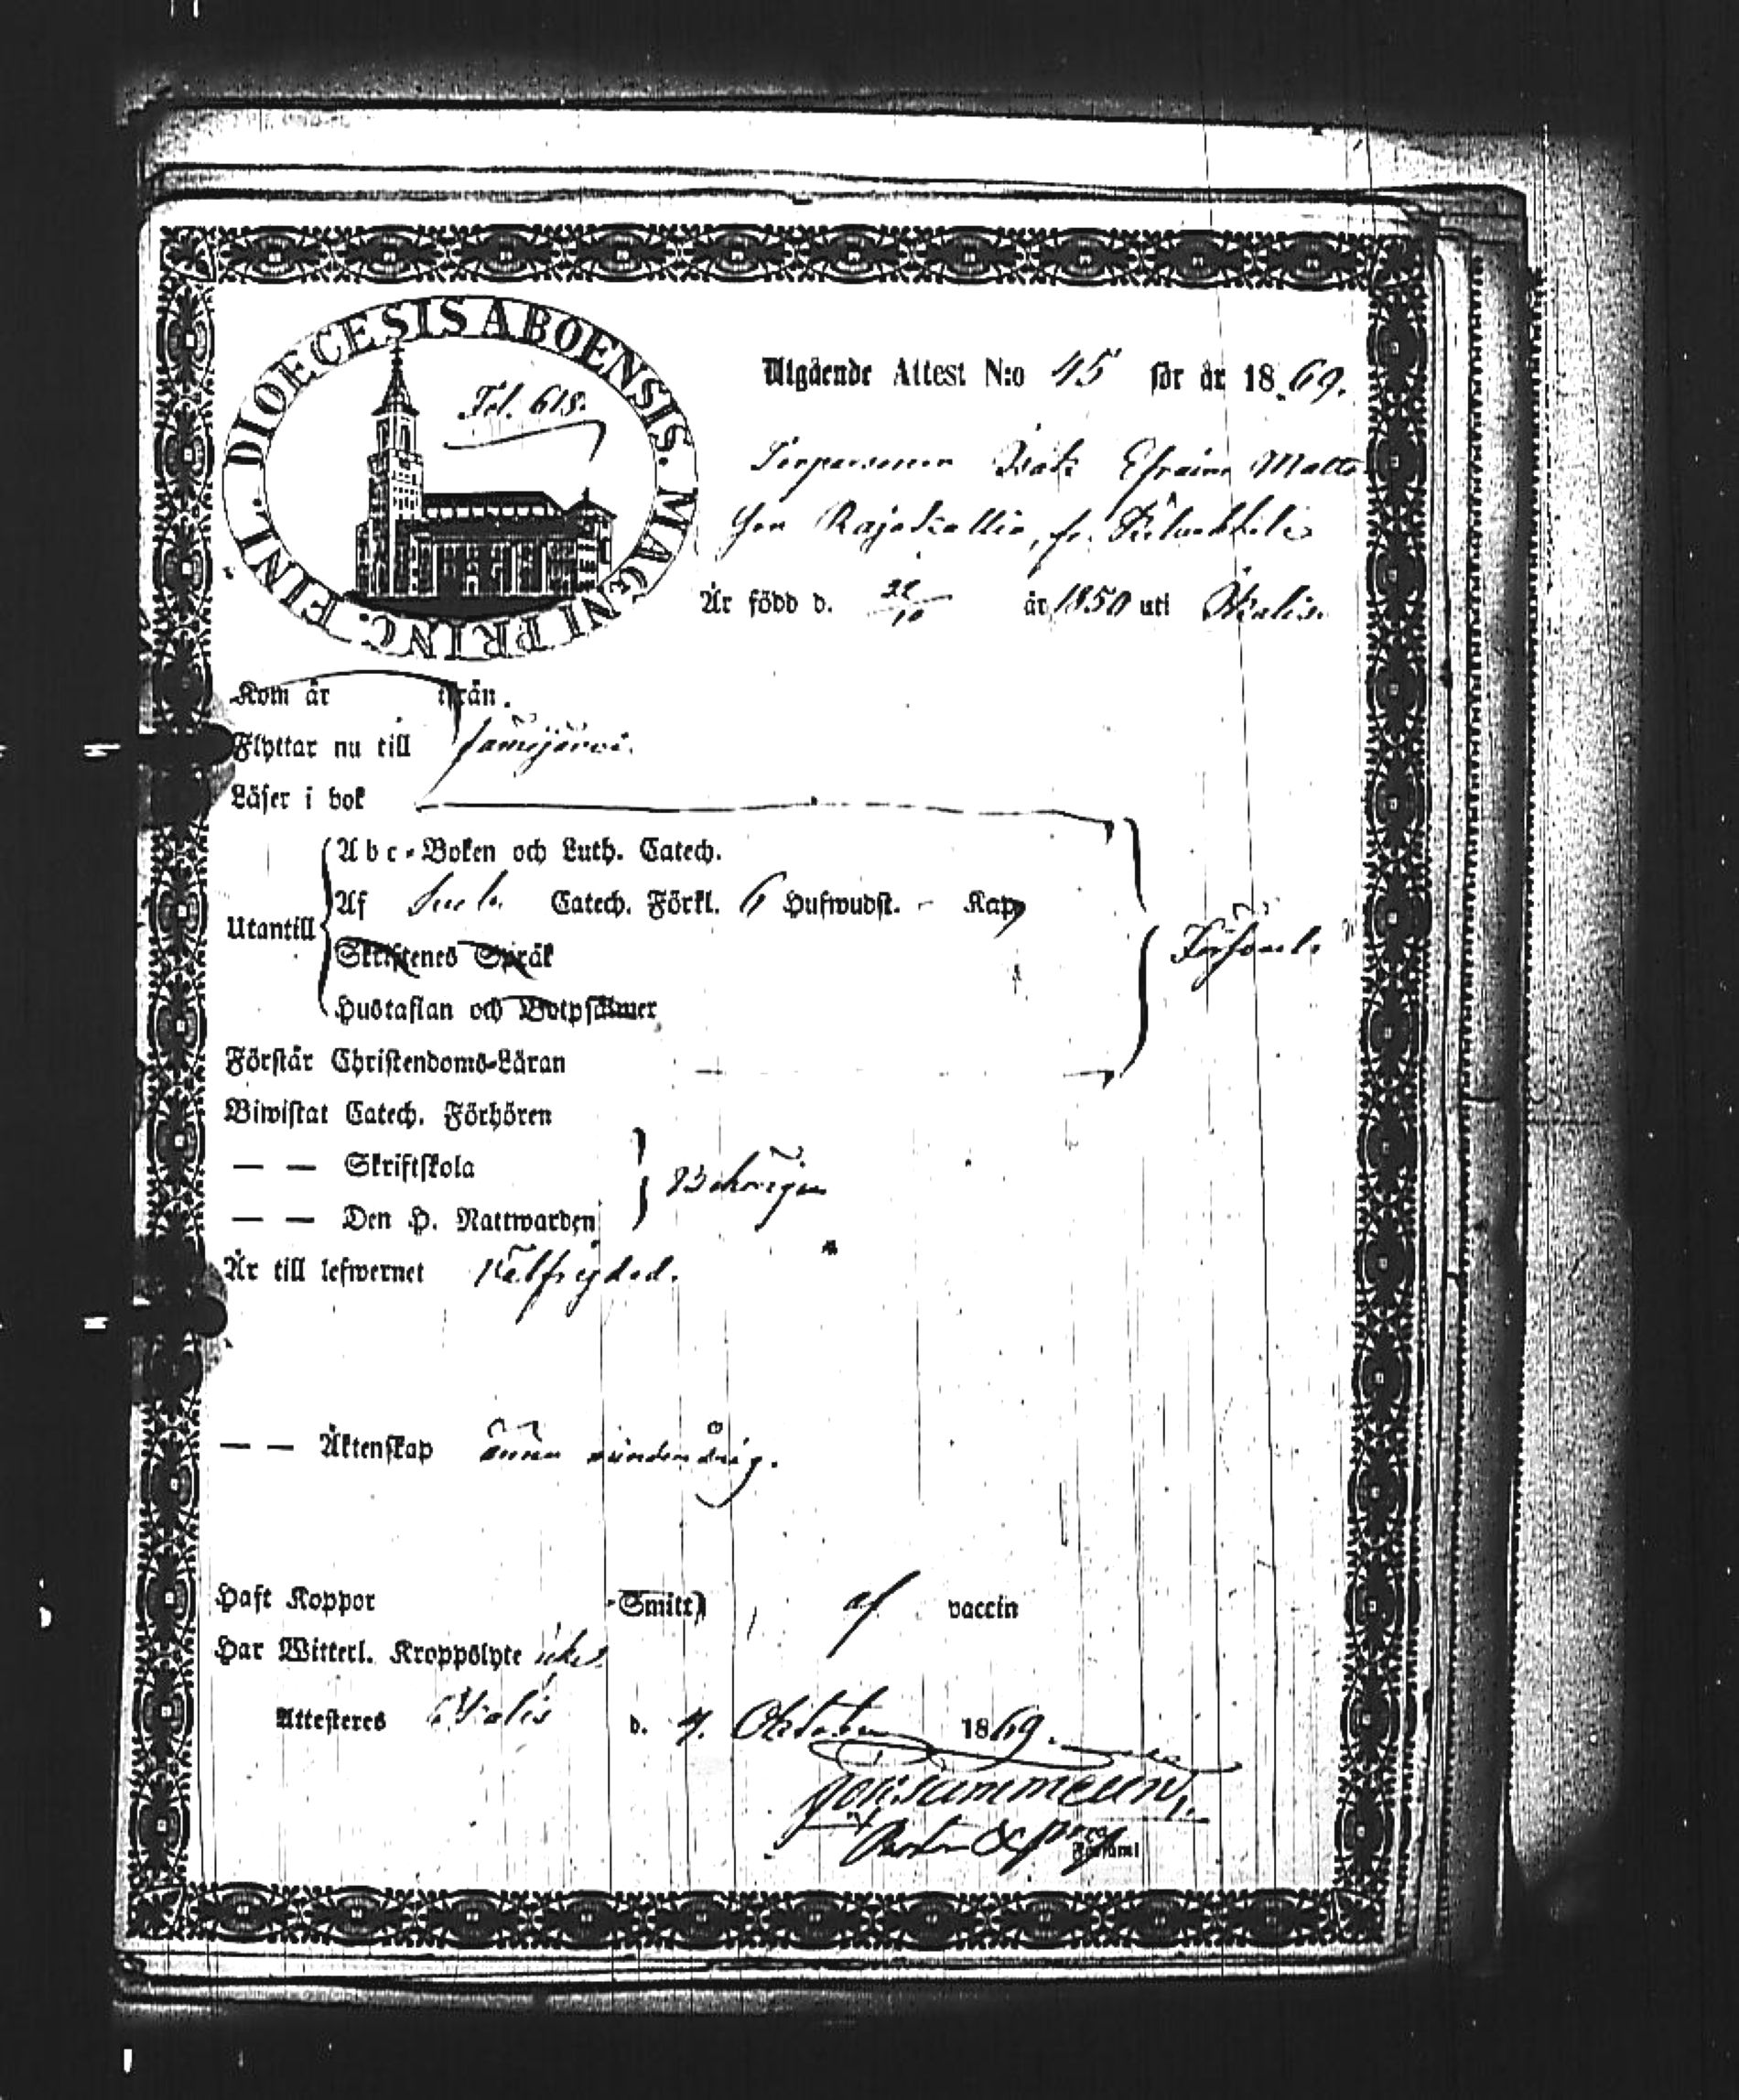 DIOECESIS ABOENSIS. MAGNI PRINC. FINL.
Fol. 618.
Utgående Attest N:o 45 för år 1869.
Torparesonen Isak Efraim Matts
son Rajakallio, fr.
Är född d. 22/10 år 1850 uti Ikalis.
Kom år ifrån
Flyttar nu till Jämijärvi.
Läser i bok
Utantill
Abc-Boken och Luth. Catech.
Af Sveb. Catech. Förkl. 6 Hufwudst. - Kap
Skriftenes Språk
Hustaflan och Botpsalmer
Försvarl.
Förstår Christendoms-Läran
Biwistat Catech. Förhören
— — Skriftskola
— — Den H. Nattwarden
Behörigen
Är till lefwernet Välfrejdad.
— — Äktenskap ännu underårig.
Haft Koppor Smitt) af vaccin
Har Witterl. Kroppslyte icke.
Attesteras Ikalis d. 4. Oktober 1869.
Församl